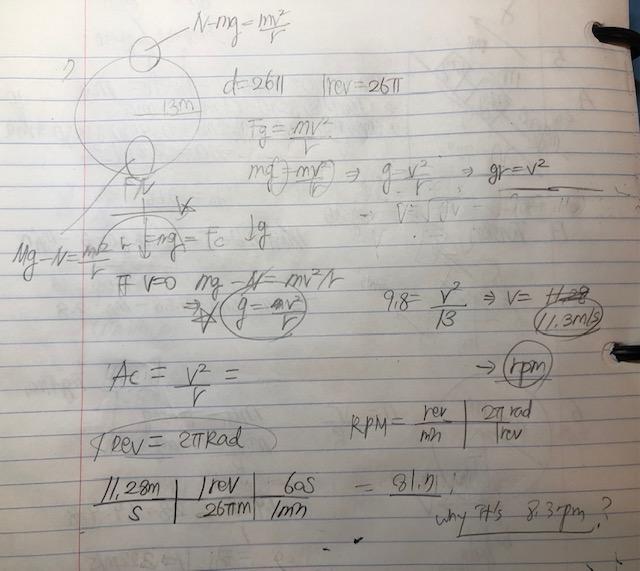 N-mg = mv²/r
?
13m
d=26π 1rev=26π
Fg = mv²/r
mg = mv²/r ⇒ g = v²/r ⇒ gr = v²
FN
Mg-N = mv²/r
mg = Fc ↓g
If v=0 mg - N = mv²/r
⇒ g = mv²/r
9.8 = v²/13 ⇒ v = 11.28
11.3m/s
→ rpm
Ac = v²/r =
RPM = rev/min | 2π rad/1rev
1rev = 2πRad
11.28m/s | 1rev/26πm | 60s/1min = 81.η
why It's 8.3rpm?